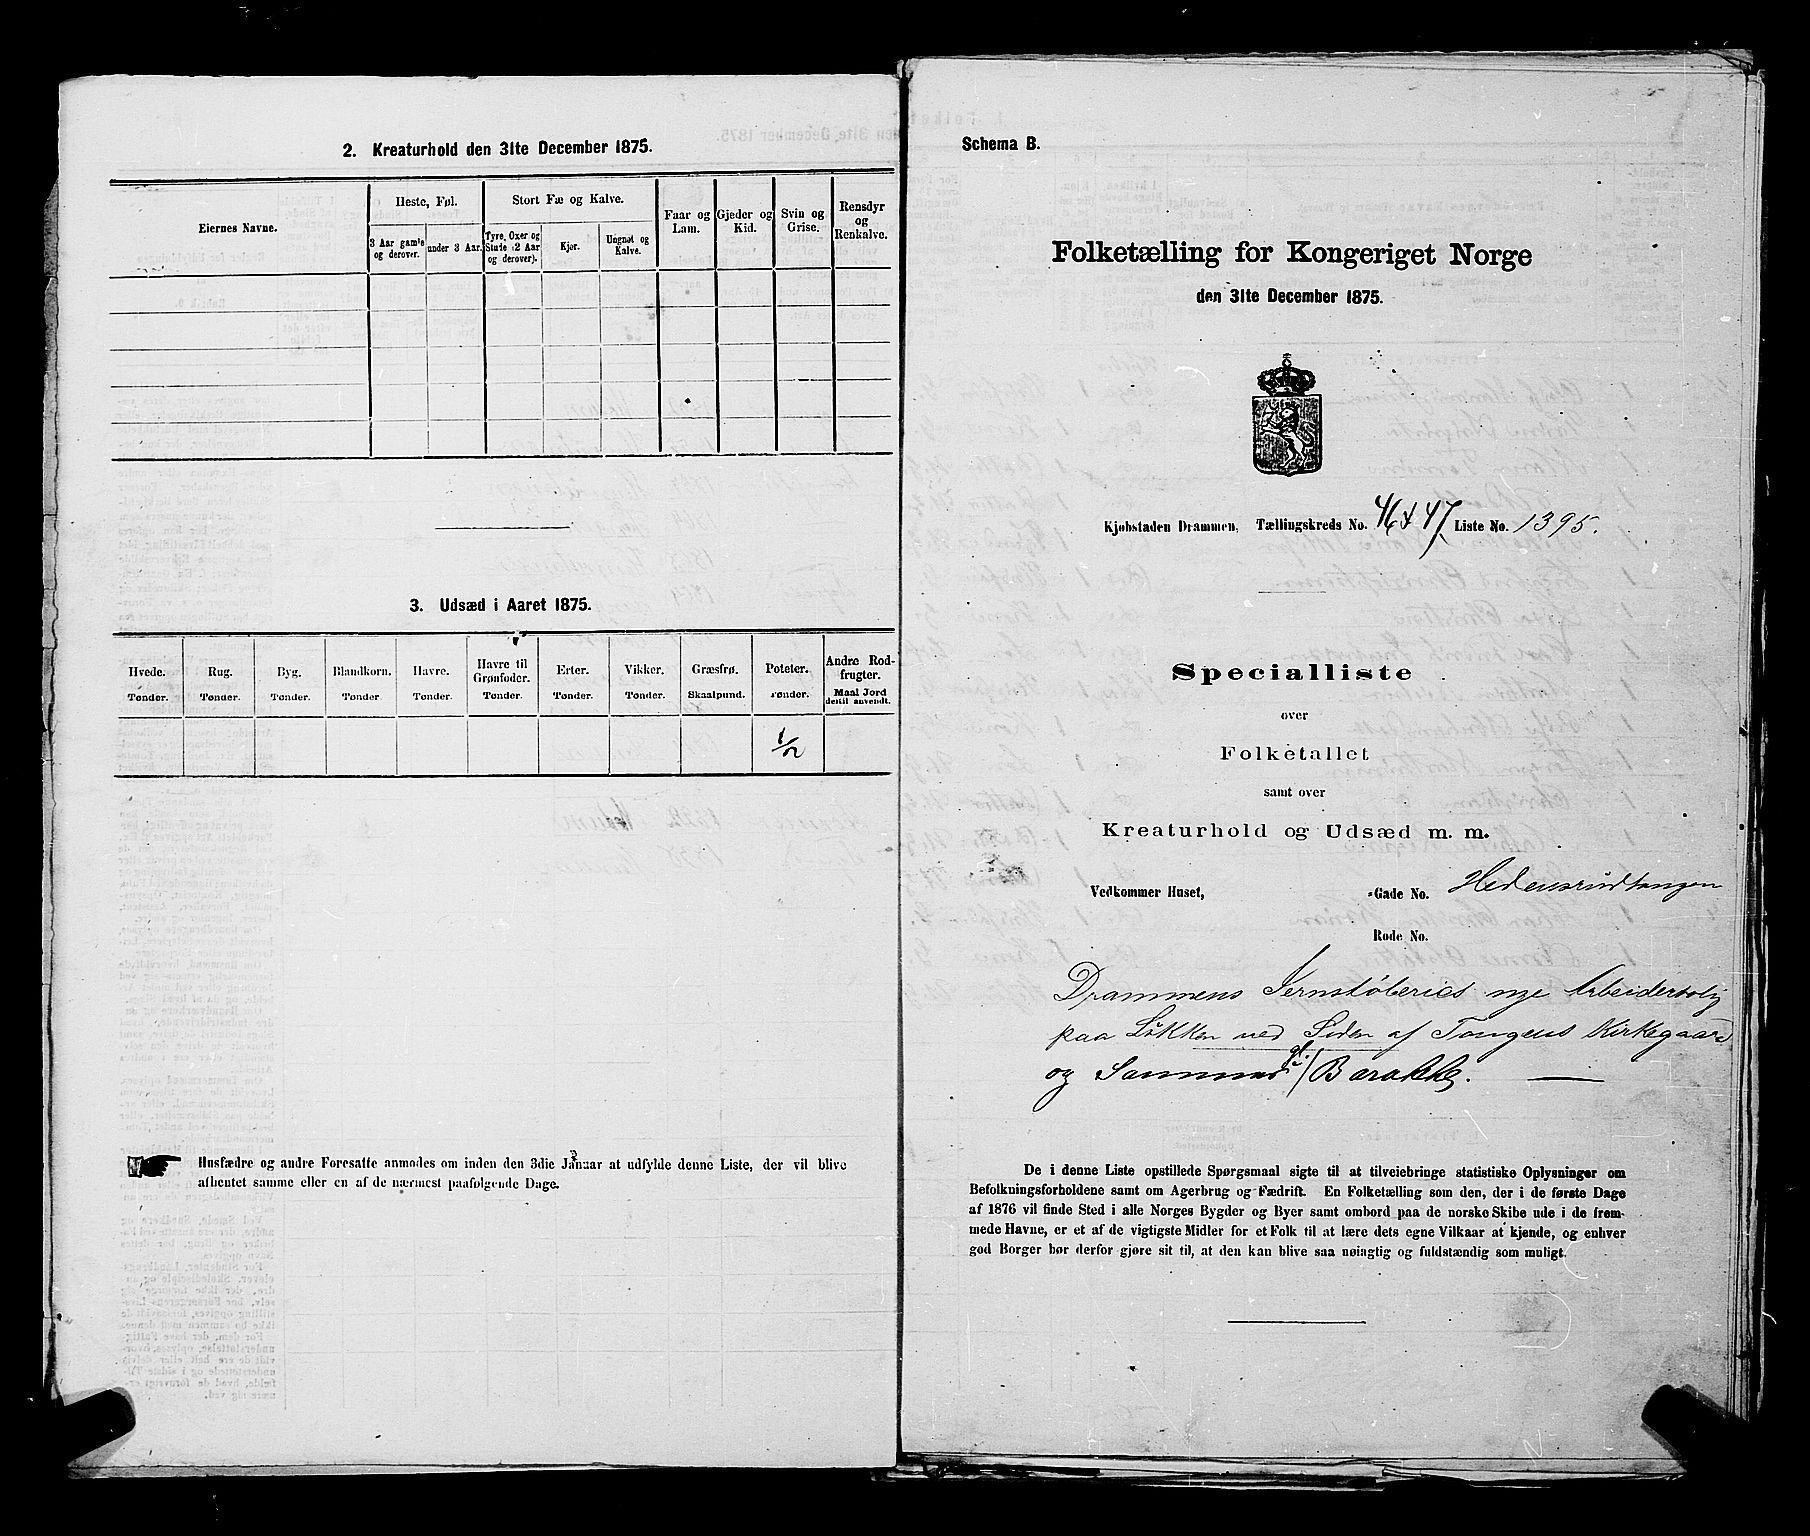 2. Kreaturhold den 31te December 1875.
Eiernes Navne.
Heste, Føl.
3 Aar gamle og derover.
under 3 Aar.
Stort Fæ og Kalve.
Tyre, Oxer og Stude (2 Aar og derover).
Kjør.
Ungnøt og Kalve.
Faar og Lam.
Gjeder og Kid.
Svin og Grise.
Rensdyr og Renkalve.
3. Udsæd i Aaret 1875.
Hvede. Tønder.
Rug. Tønder.
Byg. Tønder.
Blandkorn. Tønder.
Havre. Tønder.
Havre til Grønfoder. Tønder.
Erter. Tønder.
Vikker. Tønder.
Græsfrø. Skaalpund.
Poteter. Tønder.
Andre Rodfrugter. Maal Jord dertil anvendt.
1/2
Husfædre og andre Foresatte anmodes om inden den 3die Januar at udfylde denne Liste, der vil blive
afhentet samme eller en af de nærmest paafølgende Dage.
Schema B.
Folketælling for Kongeriget Norge
den 31te December 1875.
Kjøbstaden Drammen, Tællingskreds No. 46 & 47 Liste No. 1395.
Specialliste
over
Folketallet
samt over
Kreaturhold og Udsæd m. m.
Vedkommer Huset, -Gade No. Hedensrudtangen
Rode No.
Drammens Jernstøberies nye Arbeiderbolig
paa Løkken ved Siden af Tangens Kirkegaard
og Sammes gl. Barakke.
De i denne Liste opstillede Spørgsmaal sigte til at tilveiebringe statistiske Oplysninger om
Befolkningsforholdene samt om Agerbrug og Fædrift. En Folketælling som den, der i de første Dage
af 1876 vil finde Sted i alle Norges Bygder og Byer samt ombord paa de norske Skibe ude i de frem-
mede Havne, er et af de vigtigste Midler for et Folk til at lære dets egne Vilkaar at kjende, og enhver
god Borger bør derfor gjøre sit til, at den kan blive saa nøiagtig og fuldstændig som muligt.